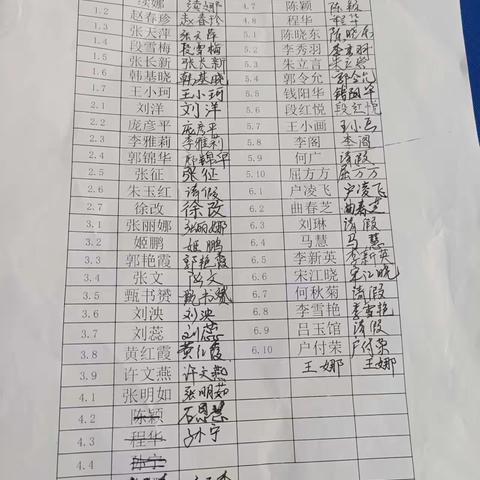 续娜 续娜 4.7 陈颖 陈颖
1.2 赵春珍 赵春珍 4.8 程华 程华
1.3 张天萍 张天萍 5.1 陈晓东 陈晓东
1.4 段雪梅 段雪梅 5.2 李秀羽 李秀羽
1.5 张长新 张长新 5.3 朱立言 朱立言
1.6 韩基晓 韩基晓 5.4 郭令允 郭令允
1.7 王小珂 王小珂 5.5 钱阳华 钱阳华
2.1 刘洋 刘洋 5.6 段红悦 段红悦
2.2 庞彦平 庞彦平 5.7 王小画
2.3 李雅莉 李雅莉 5.8 李阁 李阁
2.4 郭锦华 郭锦华 5.9 何广 请假
2.5 张征 张征 5.10 屈方方 屈方方
2.6 朱玉红 请假 6.1 户凌飞 户凌飞
2.7 徐改 徐改 6.2 曲春芝 曲春芝
3.1 张丽娜 张丽娜 6.3 刘琳 请假
3.2 姬鹏 姬鹏 6.4 马慧 马慧
3.3 郭艳霞 郭艳霞 6.5 李新英 李新英
3.4 张文 张文 6.6 宋江晓 宋江晓
3.5 甄书赟 甄书赟 6.7 何秋菊 请假
3.6 刘泱 刘泱 6.8 李雪艳 李雪艳
3.7 刘蕊 刘蕊 6.9 吕玉馆 请假
3.8 黄红霞 黄红霞 6.10 户付荣 户付荣
3.9 许文燕 许文燕 王娜 王娜
4.1 张明如 张明茹
4.2 陈颖 石恩慧
4.3 程华 孙宁
4.4 孙宁